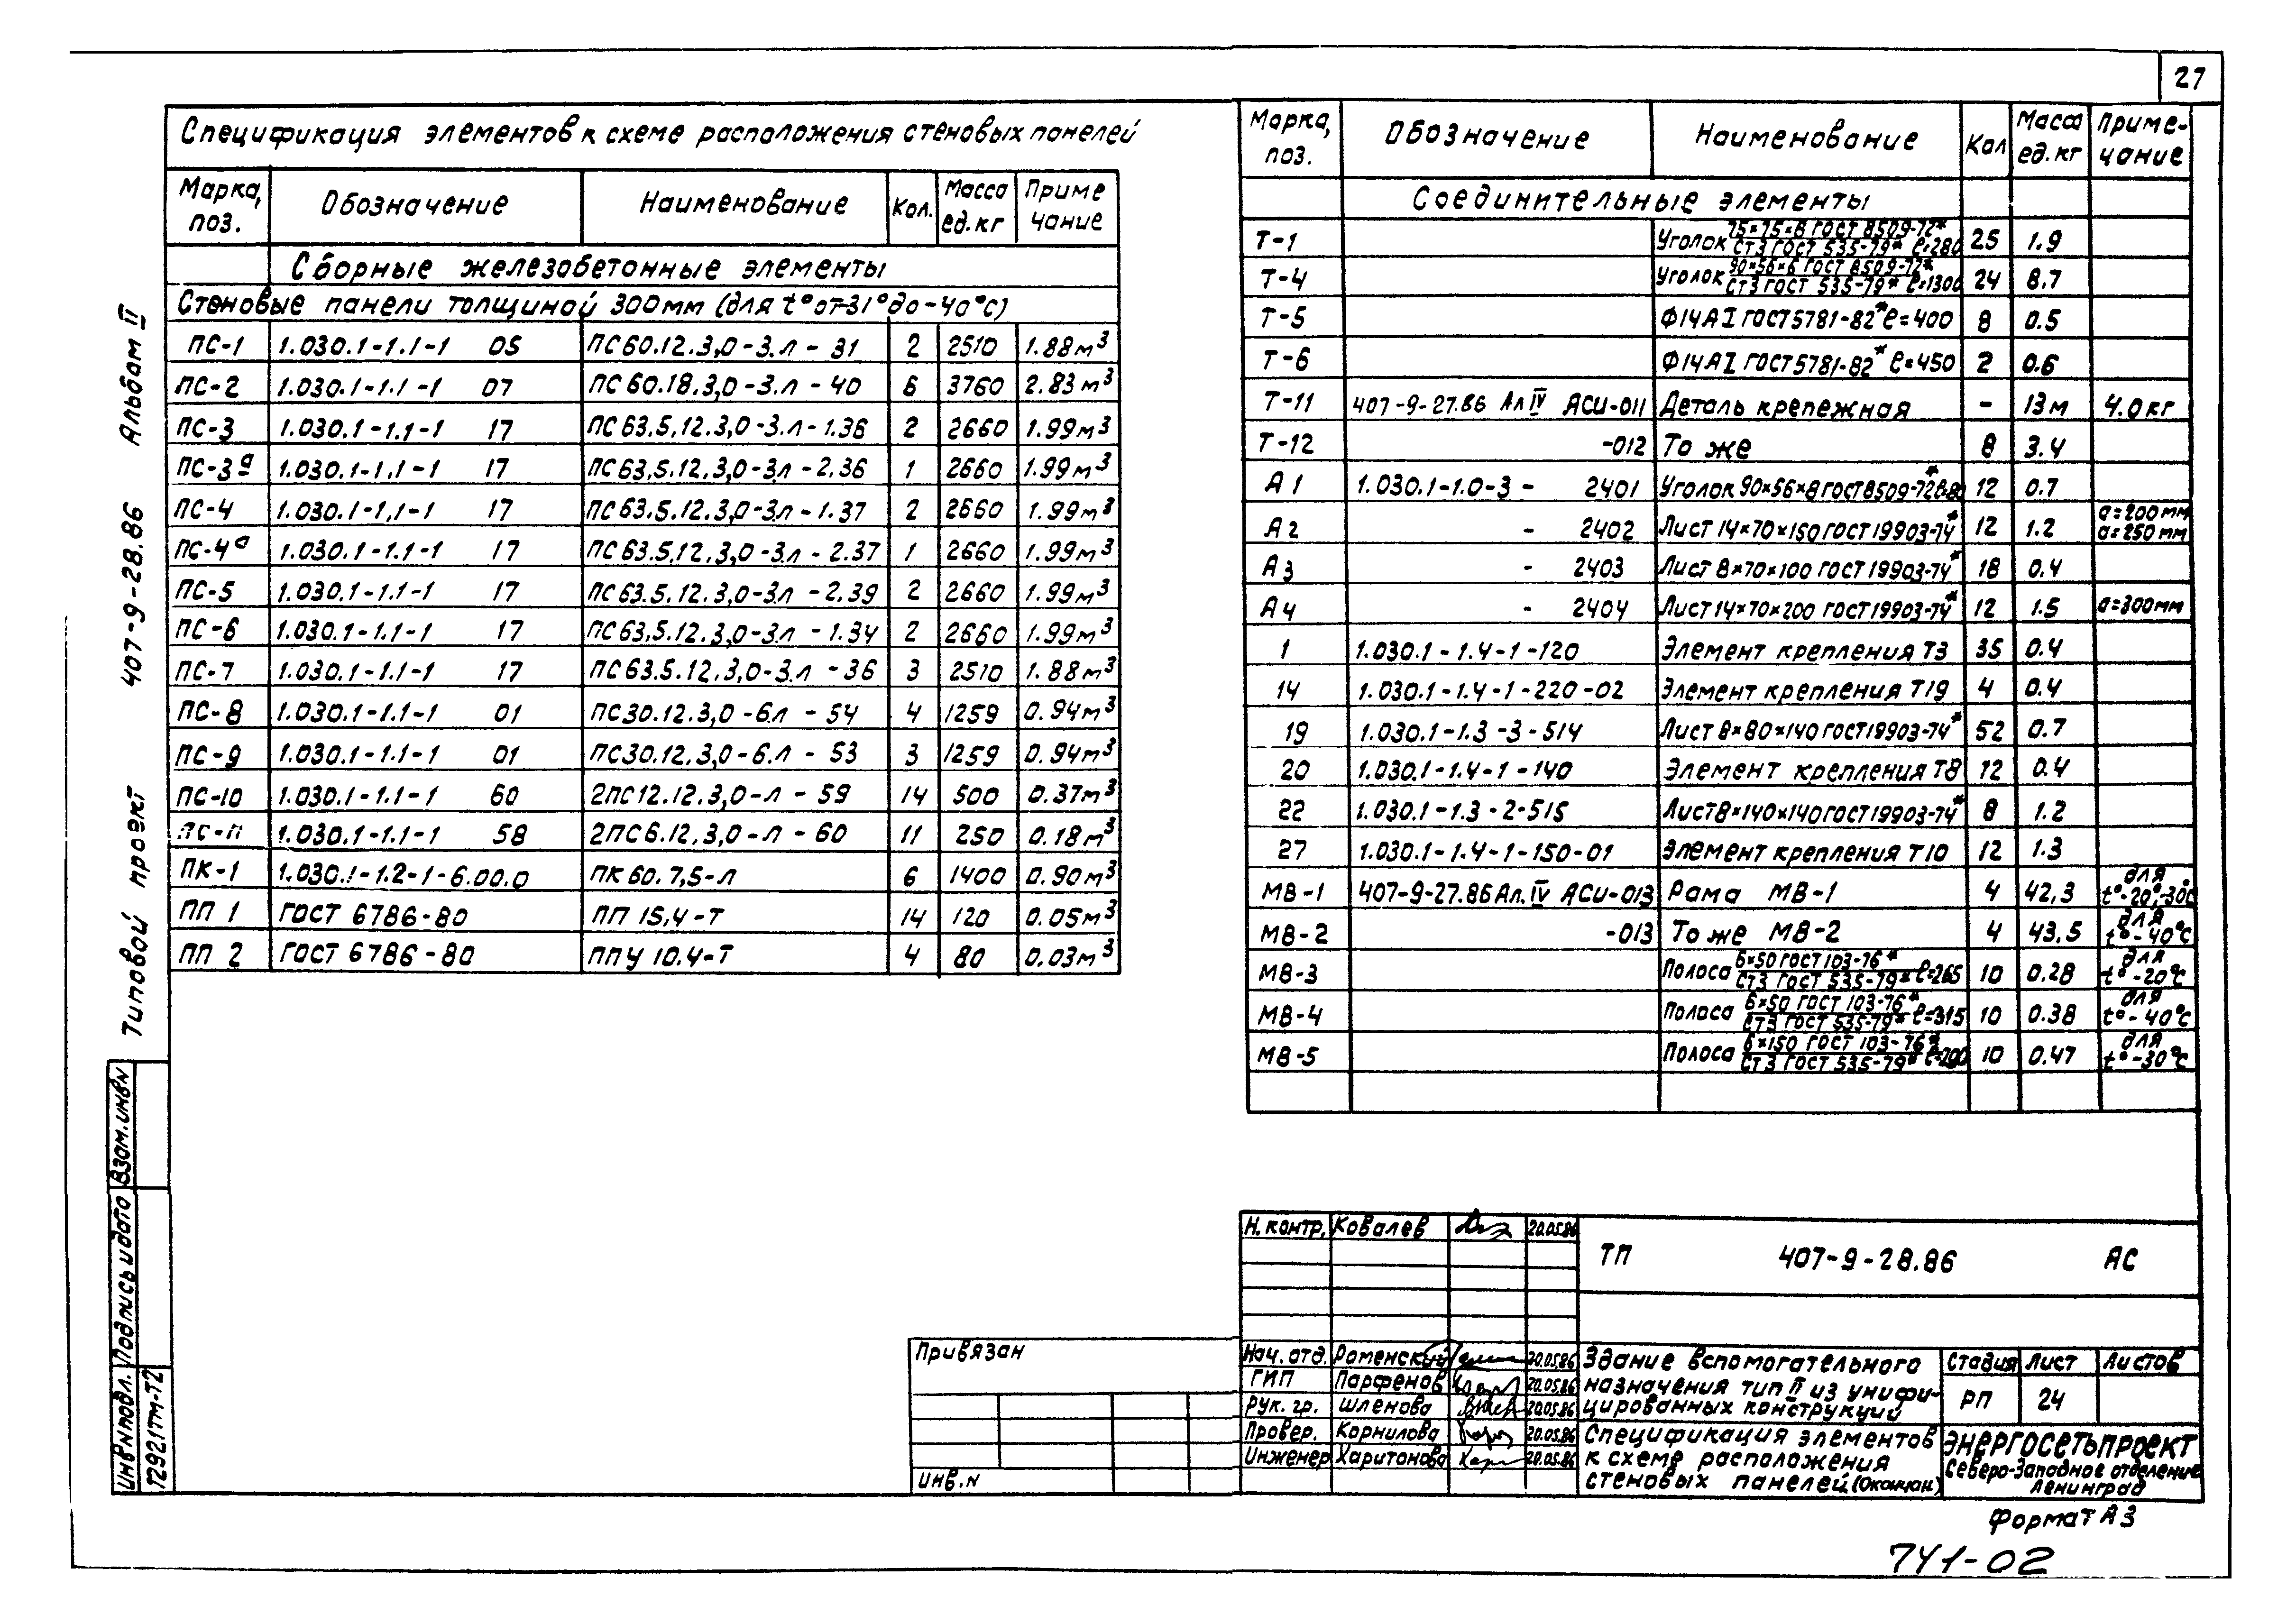 27
Спецификация элементов к схеме расположения стеновых панелей
Марка, поз. Обозначение Наименование Кол. Масса ед.кг Приме чание
Сборные железобетонные элементы
Стеновые панели толщиной 300мм (для t° от-31° до-40°с)
ПС-1 1.030.1-1.1-1 05 ПС60.12.3,0-3.Л-31 2 2510 1.88м3
ПС-2 1.030.1-1.1-1 07 ПС60.18.3,0-3.Л-40 6 3760 2.83м3
ПС-3 1.030.1-1.1-1 17 ПС63.5.12.3,0-3.Л-1.36 2 2660 1.99м3
ПС-3а 1.030.1-1.1-1 17 ПС63,5.12.3,0-3Л-2.36 1 2660 1.99м3
ПС-4 1.030.1-1.1-1 17 ПС63.5.12.3,0-3Л-1.37 2 2660 1.99м3
ПС-4а 1.030.1-1.1-1 17 ПС63.5.12.3,0-3Л-2.37 1 2660 1.99м3
ПС-5 1.030.1-1.1-1 17 ПС63.5.12.3,0-3Л-2.39 2 2660 1.99м3
ПС-6 1.030.1-1.1-1 17 ПС63.5.12.3,0-3Л-1.34 2 2660 1.99м3
ПС-7 1.030.1-1.1-1 17 ПС63.5.12.3,0-3.Л-36 3 2510 1.88м3
ПС-8 1.030.1-1.1-1 01 ПС30.12.3,0-6Л-54 4 1259 0.94м3
ПС-9 1.030.1-1.1-1 01 ПС30.12.3,0-6.Л-53 3 1259 0.94м3
ПС-10 1.030.1-1.1-1 60 2ПС12.12.3,0-Л-59 14 500 0.37м3
ПС-11 1.030.1-1.1-1 58 2ПС6.12.3,0-Л-60 11 250 0.18м3
ПК-1 1.030.1-1.2-1-6.00.0 ПК60.7,5-Л 6 1400 0.90м3
ПП 1 ГОСТ 6786-80 ПП 15,4-Т 14 120 0.05м3
ПП 2 ГОСТ 6786-80 ППУ 10.4-Т 4 80 0.03м3
Марка, поз. Обозначение Наименование Кол Масса ед.кг Приме-чание
Соединительные элементы
Т-1 Уголок 75×75×6 ГОСТ 8509-72* Ст3 ГОСТ 535-79* ℓ=280 25 1.9
Т-4 Уголок 90×56×6 ГОСТ 8509-72* Ст3 ГОСТ 535-79* ℓ=1300 24 8.7
Т-5 Ф14АI ГОСТ5781-82* ℓ=400 8 0.5
Т-6 Ф14АI ГОСТ5781-82* ℓ=450 2 0.6
Т-11 407-9-27.86 Ал IV АСИ-011 Деталь крепежная - 13м 4.0кг
Т-12 -012 То же 8 3.4
А1 1.030.1-1.0-3 - 2401 Уголок 90×56×8 ГОСТ8509-72* 12 0.7
А2 - 2402 Лист 14×70×150 ГОСТ19903-74* 12 1.2 а=200мм а=250мм
А3 - 2403 Лист 8×70×100 ГОСТ19903-74* 18 0.4
А4 - 2404 Лист 14×70×200 ГОСТ19903-74* 12 1.5 а=300мм
1 1.030.1-1.4-1-120 Элемент крепления Т3 35 0.4
14 1.030.1-1.4-1-220-02 Элемент крепления Т19 4 0.4
19 1.030.1-1.3-3-514 Лист 8×80×140 ГОСТ19903-74* 52 0.7
20 1.030.1-1.4-1-140 Элемент крепления Т8 12 0.4
22 1.030.1-1.3-2-515 Лист 8×140×140 ГОСТ19903-74* 8 1.2
27 1.030.1-1.4-1-150-01 Элемент крепления Т10 12 1.3
МВ-1 407-9-27.86 Ал. IV АСИ-013 Рама МВ-1 4 42,3 для t°-20°,-30°с
МВ-2 -013 То же МВ-2 4 43.5 для t°-40°с
МВ-3 Полоса 6×50 ГОСТ 103-76* Ст3 ГОСТ 535-79* ℓ=265 10 0.28 для t°-20°с
МВ-4 Полоса 6×50 ГОСТ 103-76* Ст3 ГОСТ 535-79* ℓ=315 10 0.38 для t°-40°с
МВ-5 Полоса 6×150 ГОСТ 103-76* Ст3 ГОСТ 535-79* ℓ=200 10 0.47 для t°-30°с
Типовой проект 407-9-28.86 Альбом II
Взам.инв№
Подпись и дата
Инв№подл.
12921тм-т2
Привязан
Инв.N
Н.контр. Ковалев 20.05.86
Нач.отд. Роменский 20.05.86
ГИП Парфенов 20.05.86
Рук. гр. Шленова 20.05.86
Провер. Корнилова 20.05.86
Инженер Харитонова 20.05.86
ТП 407-9-28.86 АС
Здание вспомогательного
назначения тип II из унифи-
цированных конструкций
Стадия Лист Листов
РП 24
Спецификация элементов
к схеме расположения
стеновых панелей (Окончан)
ЭНЕРГОСЕТЬПРОЕКТ
Северо-Западное отделение
Ленинград
Формат А3
741-02